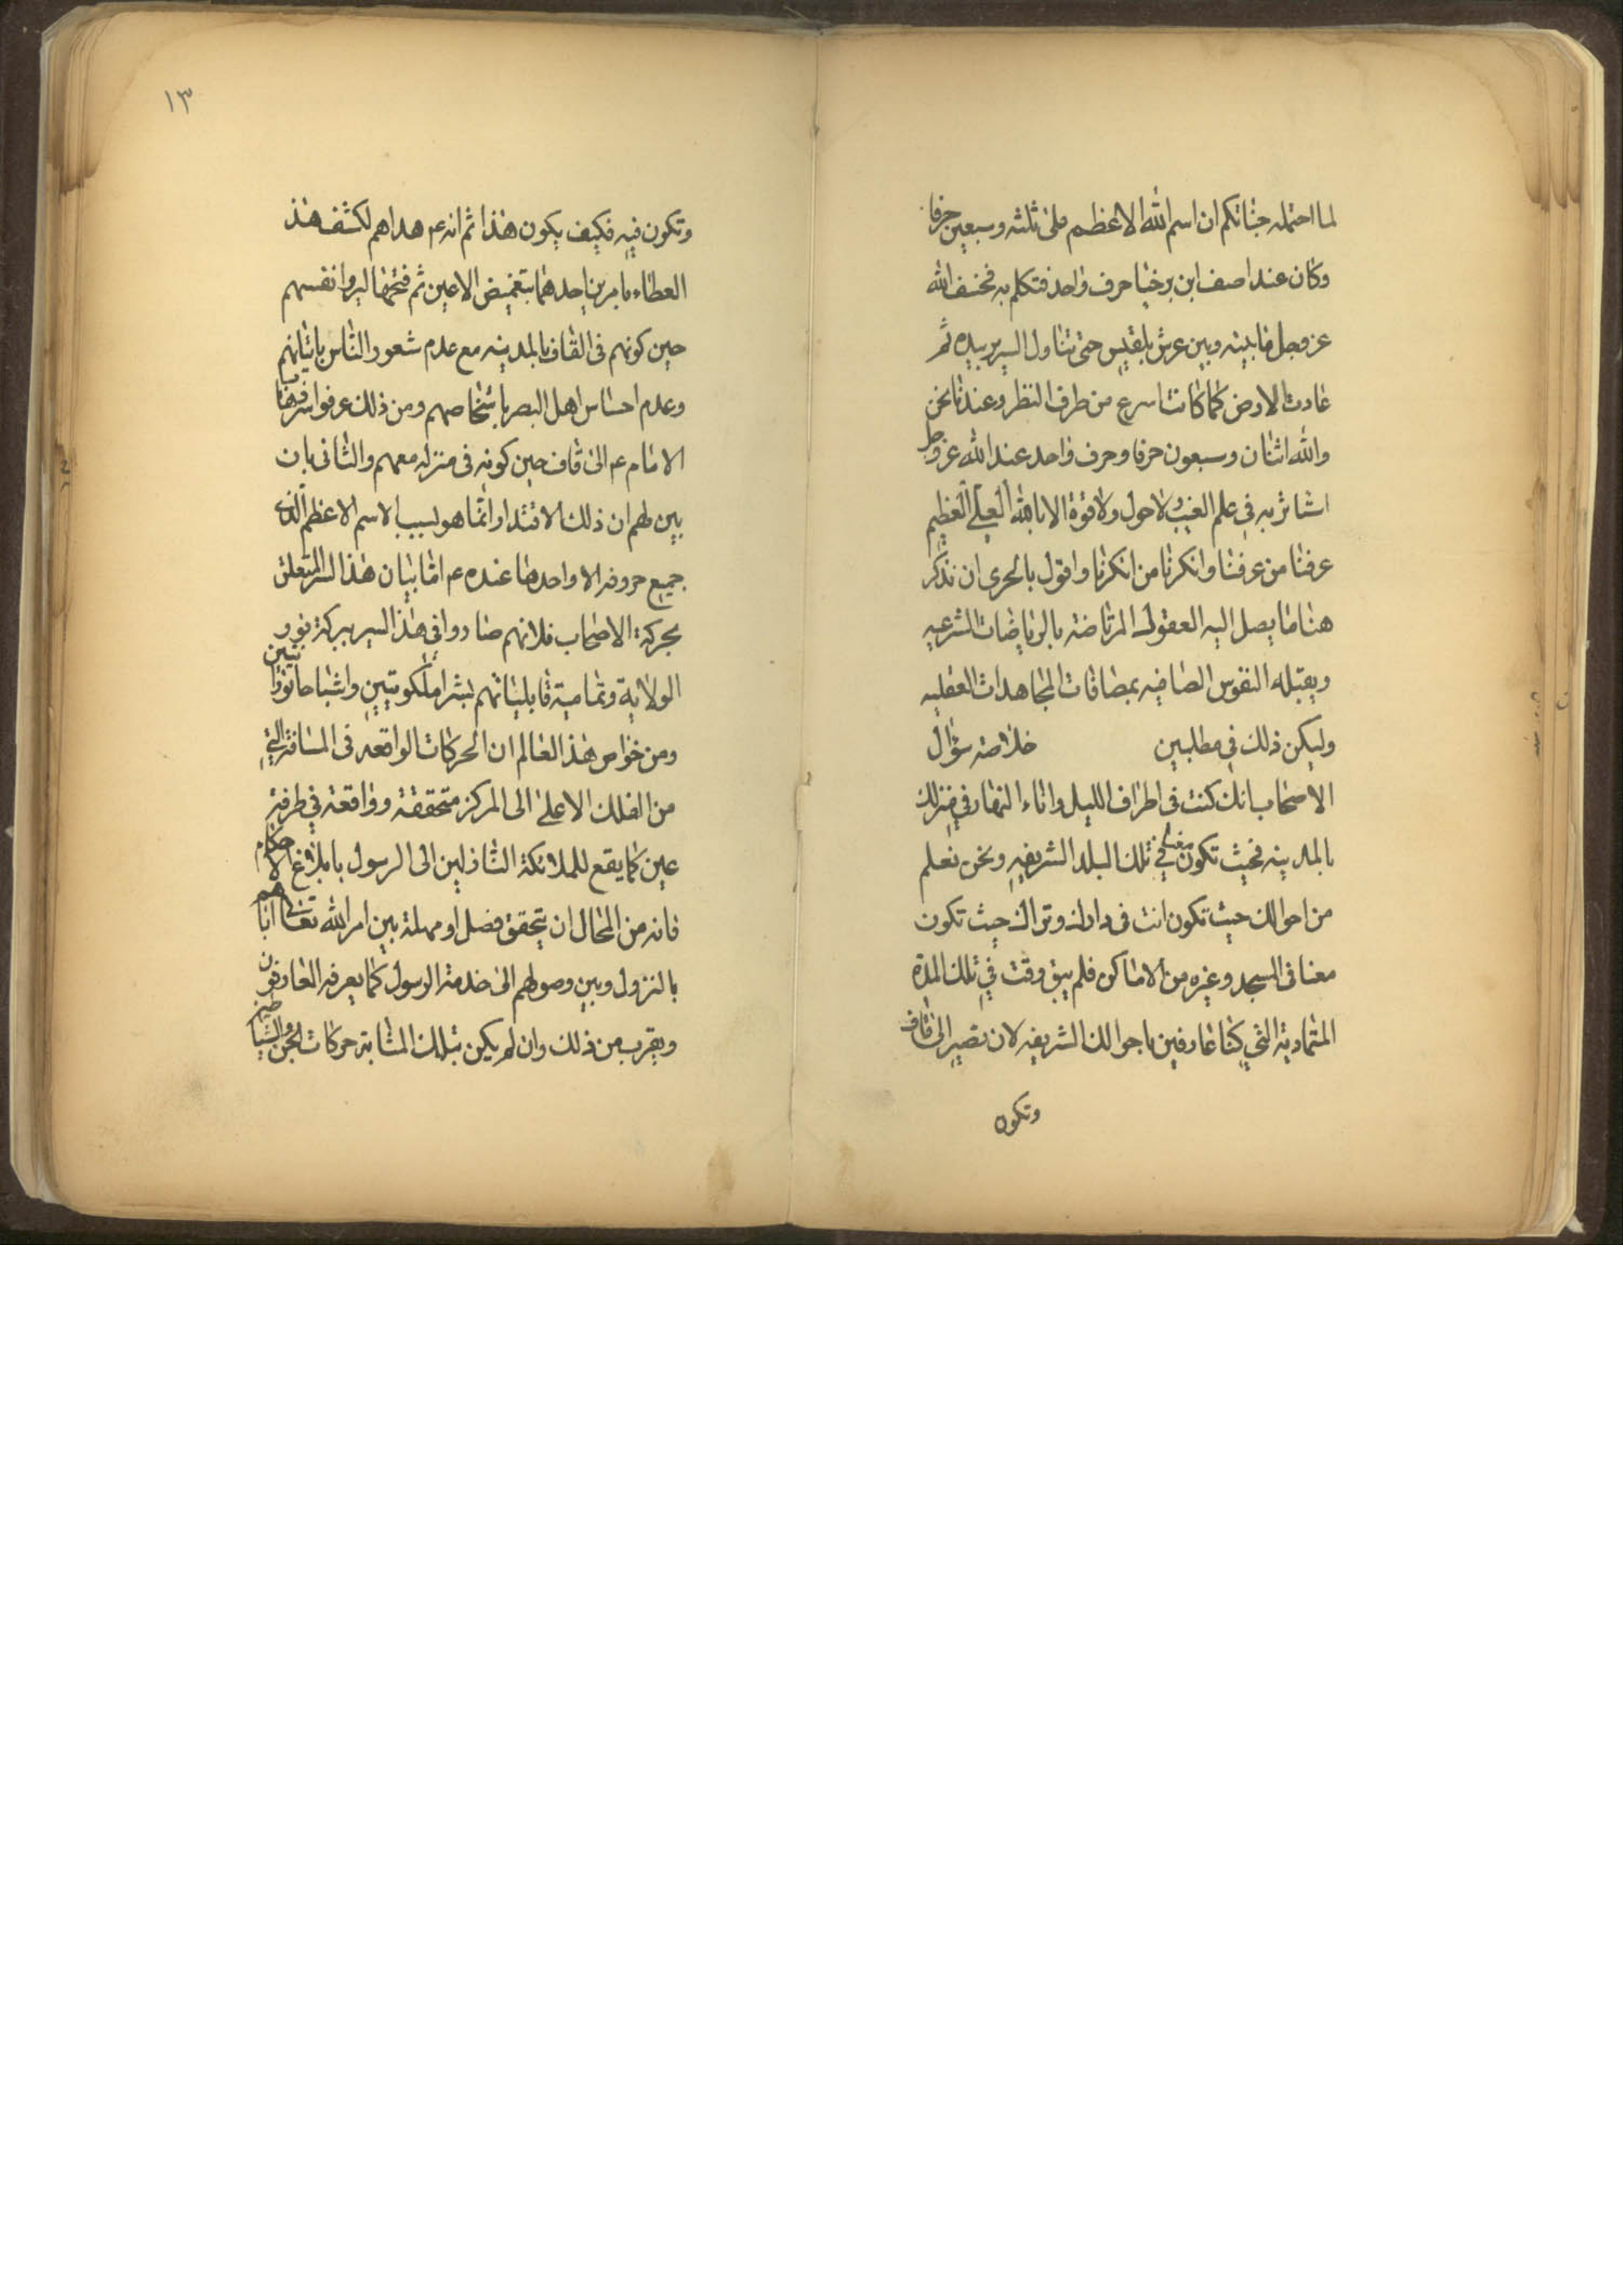 لما احتمله جنانكم ان اسم الله الاعظم على ثلثه وسبعين حرفا
وكان عند اصف ابن برخيا حرف واحد فتكلم به فخسف الله
عز وجل ما بينه وبين عرش بلقيس حتى تناول السرير بيده ثم
عادت الارض كما كانت اسرع من طرف النظر وعندنا نحن
والله اثنان وسبعون حرفا وحرف واحد عند الله عز وجل
استاثر به في علم الغيب ولا حول ولا قوة الا بالله العلي العظيم
عرفنا من عرفنا وانكرنا من انكرنا واقول بالحرى ان نذكر
هنا ما يصل اليه العقول المرتاضة بالرياضات الشرعيه
ويقبله النفوس الصافيه بمصافات المجاهدات العقليه
وليكن ذلك في مطلبين خلاصة سؤال
الاصحاب انك كنت في اطراف الليل واناء النهار في منزلك
بالمدينه فحيث تكون معنا في تلك البلد الشريفه ونحن نعلم
من احوالك حيث تكون انت في دارك ونراك حيث تكون
معنا في المسجد وغيره من الاماكن فلم يبق وقت في تلك المدة
المتمادية التي كنا عارفين باحوالك الشريفه لان تصير الى قاف
وتكون
١٣
وتكون فيه فكيف يكون هذا ثم انه ع هداهم لكشف هذ
العطاء بامرين احدهما بتغميض الاعين ثم فتحها ليروا نفسهم
حين كونهم في القاف بالمدينه مع عدم شعور الناس باتيانهم
وعدم احساس اهل البصر باشخاصهم ومن ذلك عرفوا سر فيها
الامام ع الى قاف حين كونه في منزله معهم والثاني بان
بين لهم ان ذلك الاقتدار انما هو بسبب الاسم الاعظم الذى
جميع حروفه الا واحدها عنده ع اما بيان هذا السر المتعلق
بحركة الاصحاب فلانهم صاروا في هذا السير ببركة نور
الولاية وتمامية قابلياتهم بشرا ملكوتيين واشباحا نورانيين
ومن خواص هذ العالم ان الحركات الواقعه في المسافة التي
من الفلك الاعلى الى المركز متحققة وواقعة في طرفة
عين كما يقع للملائكة النازلين الى الرسول بابلاغ الاحكام
فانه من المحال ان يتحقق فصل او مهلة بين امر الله تعالى اياهم
بالنزول وبين وصولهم الى خدمة الرسول كما يعرفه العارفون
ويقرب من ذلك وان لم يكن بتلك المثابة حركات الجن والشياطين